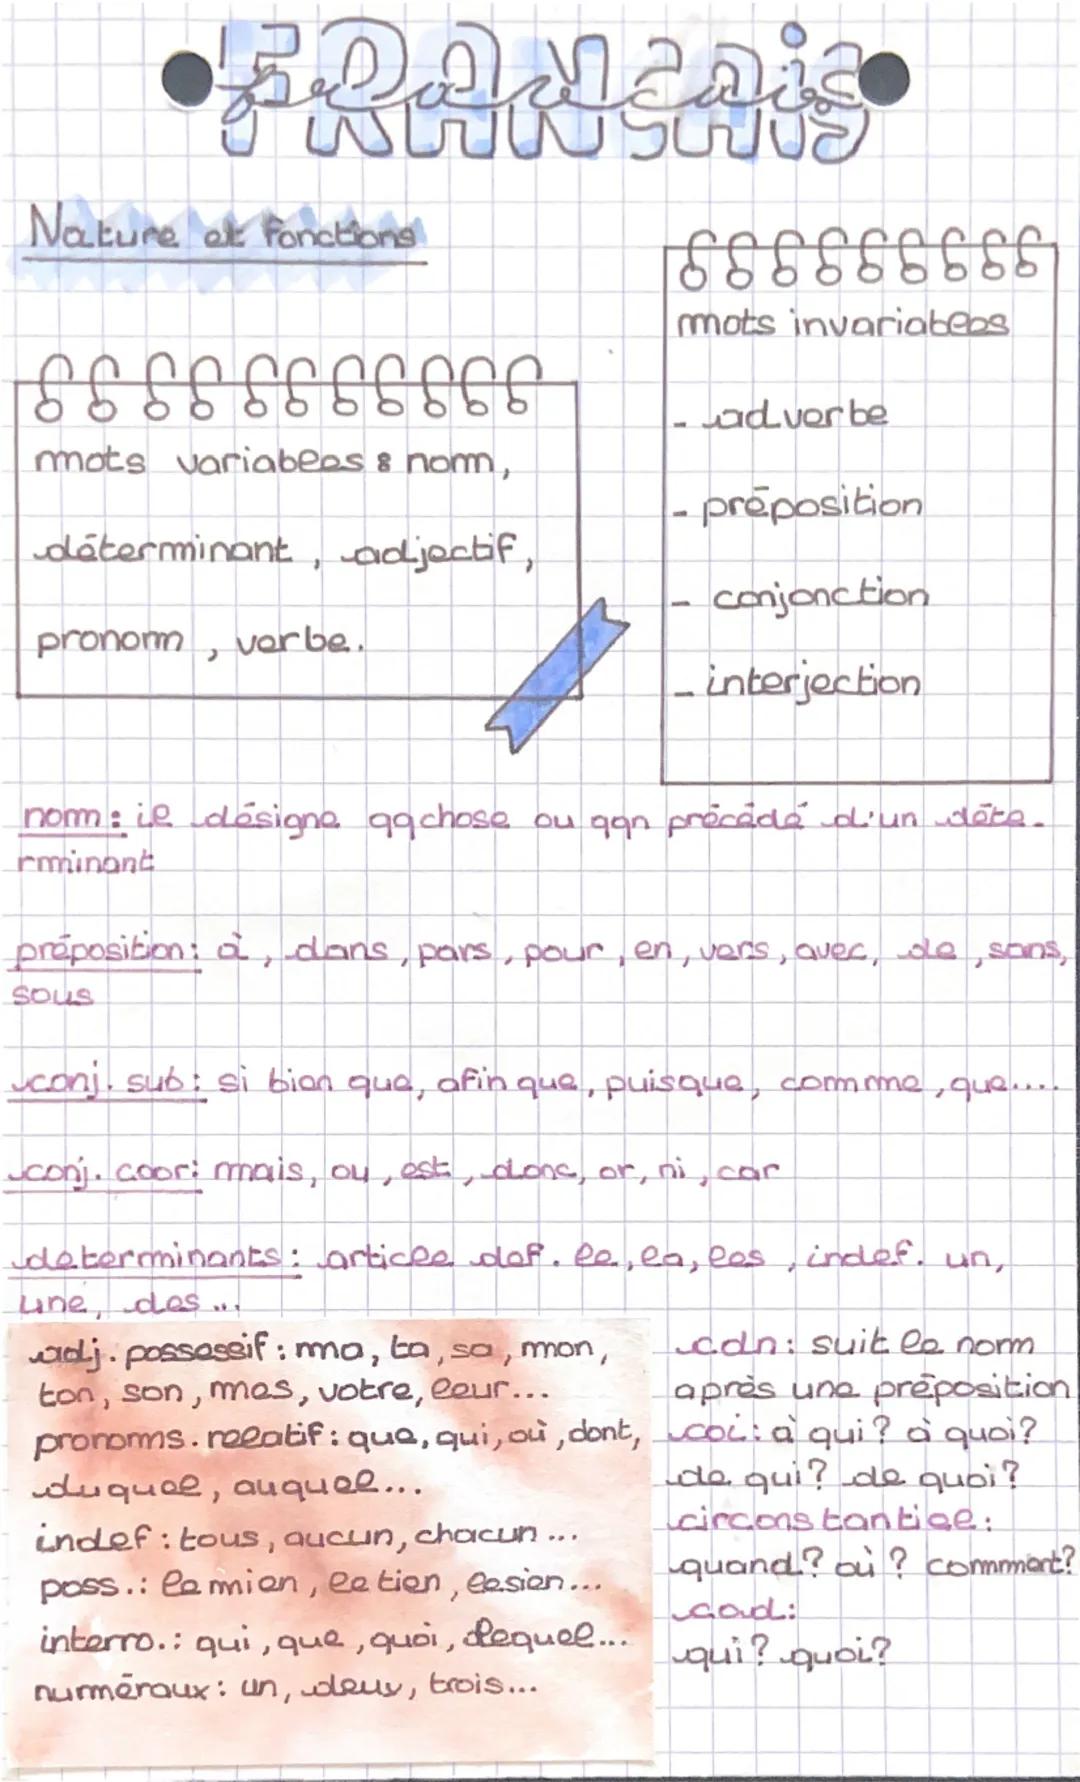 FRANÇAIS
français
Nature et fonctions
mots variables : nom,
déterminant, adjectif,
pronom, verbe.
mots invariables
- adverbe
- préposition
- conjonction
- interjection
nom : il désigne qqchose ou qqn précédé d'un déte-
rminant
préposition : à, dans, pars, pour, en, vers, avec, de, sans,
sous
conj. sub : si bien que, afin que, puisque, comme, que....
conj. coor : mais, ou, est, donc, or, ni, car
determinants : article def. le, la, les, indef. un,
une, des ...
adj. possessif : ma, ta, sa, mon,
ton, son, mes, votre, leur...
pronoms. relatif : que, qui, où, dont,
duquel, auquel...
indef : tous, aucun, chacun ...
poss. : le mien, le tien, le sien...
interro. : qui, que, quoi, lequel...
numéraux : un, deux, trois...
cdn : suit le nom
après une préposition
coi : à qui ? à quoi ?
de qui ? de quoi ?
circonstantiel :
quand ? où ? comment ?
cod :
qui ? quoi ?